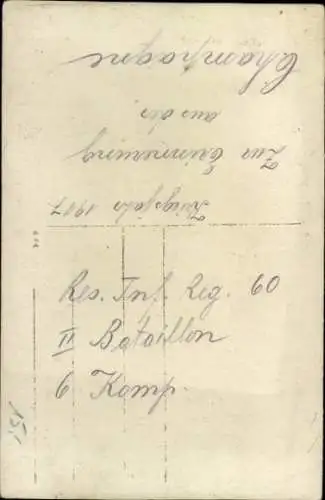 Kriegsjahr 1917
Zur Erinnerung
aus der
Champagne
Res. Inf. Reg. 60
II Bataillon
6 Komp.
15,-